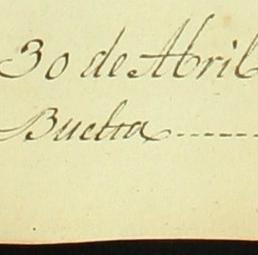 30 de Abril
Buelta